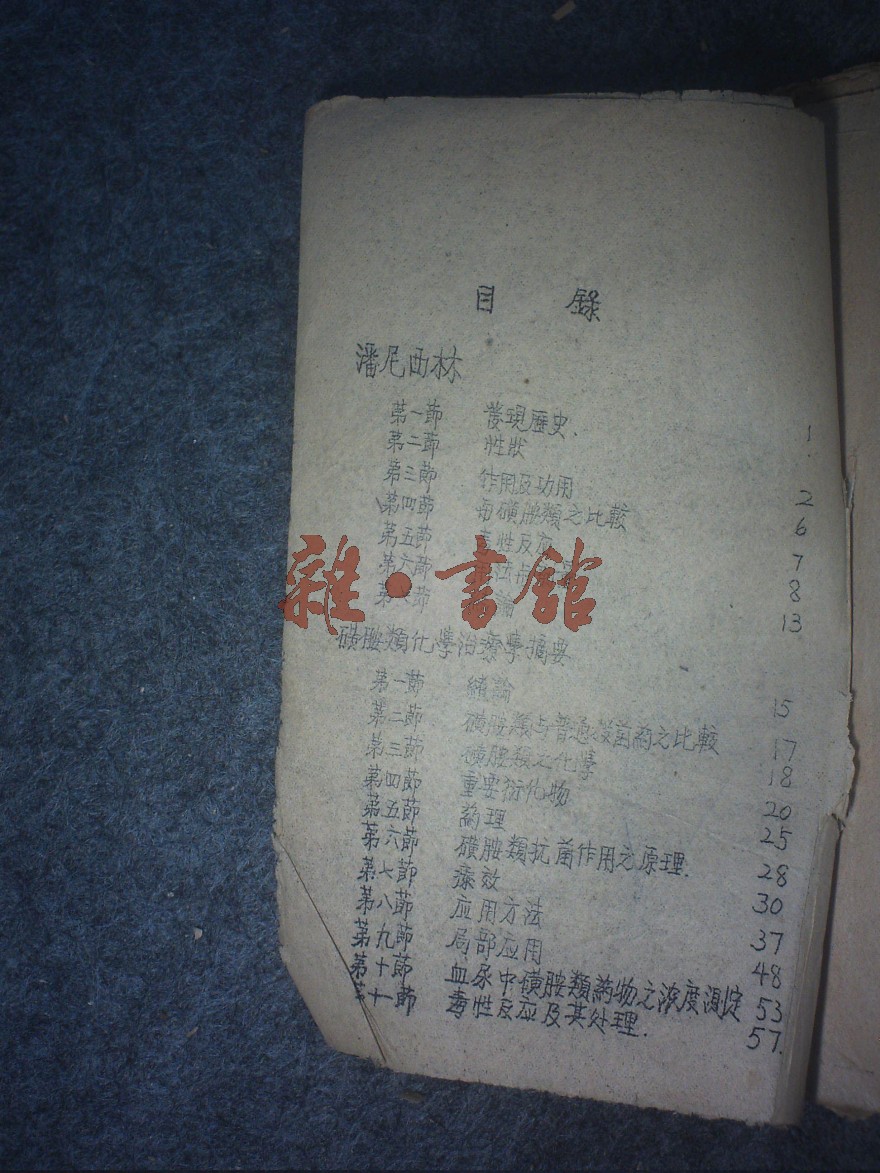 目 錄
潘尼西林
第一節 發現歷史. 1
第二節 性狀
第三節 作用及功用 2
第四節 與磺胺類之比較 6
第五節 毒性反应 7
第六節 8
第七節 論 13
雜·書館
磺胺類化學治療學摘要
第一節 緒論 15
第二節 磺胺類与普通殺菌葯之比較 17
第三節 磺胺類之化學 18
第四節 重要衍化物 20
第五節 葯理 25
第六節 磺胺類抗菌作用之原理. 28
第七節 療效 30
第八節 应用方法 37
第九節 局部应用 48
第十節 血尿中磺胺類葯物之浓度測定 53
第十一節 毒性反应及其处理. 57.